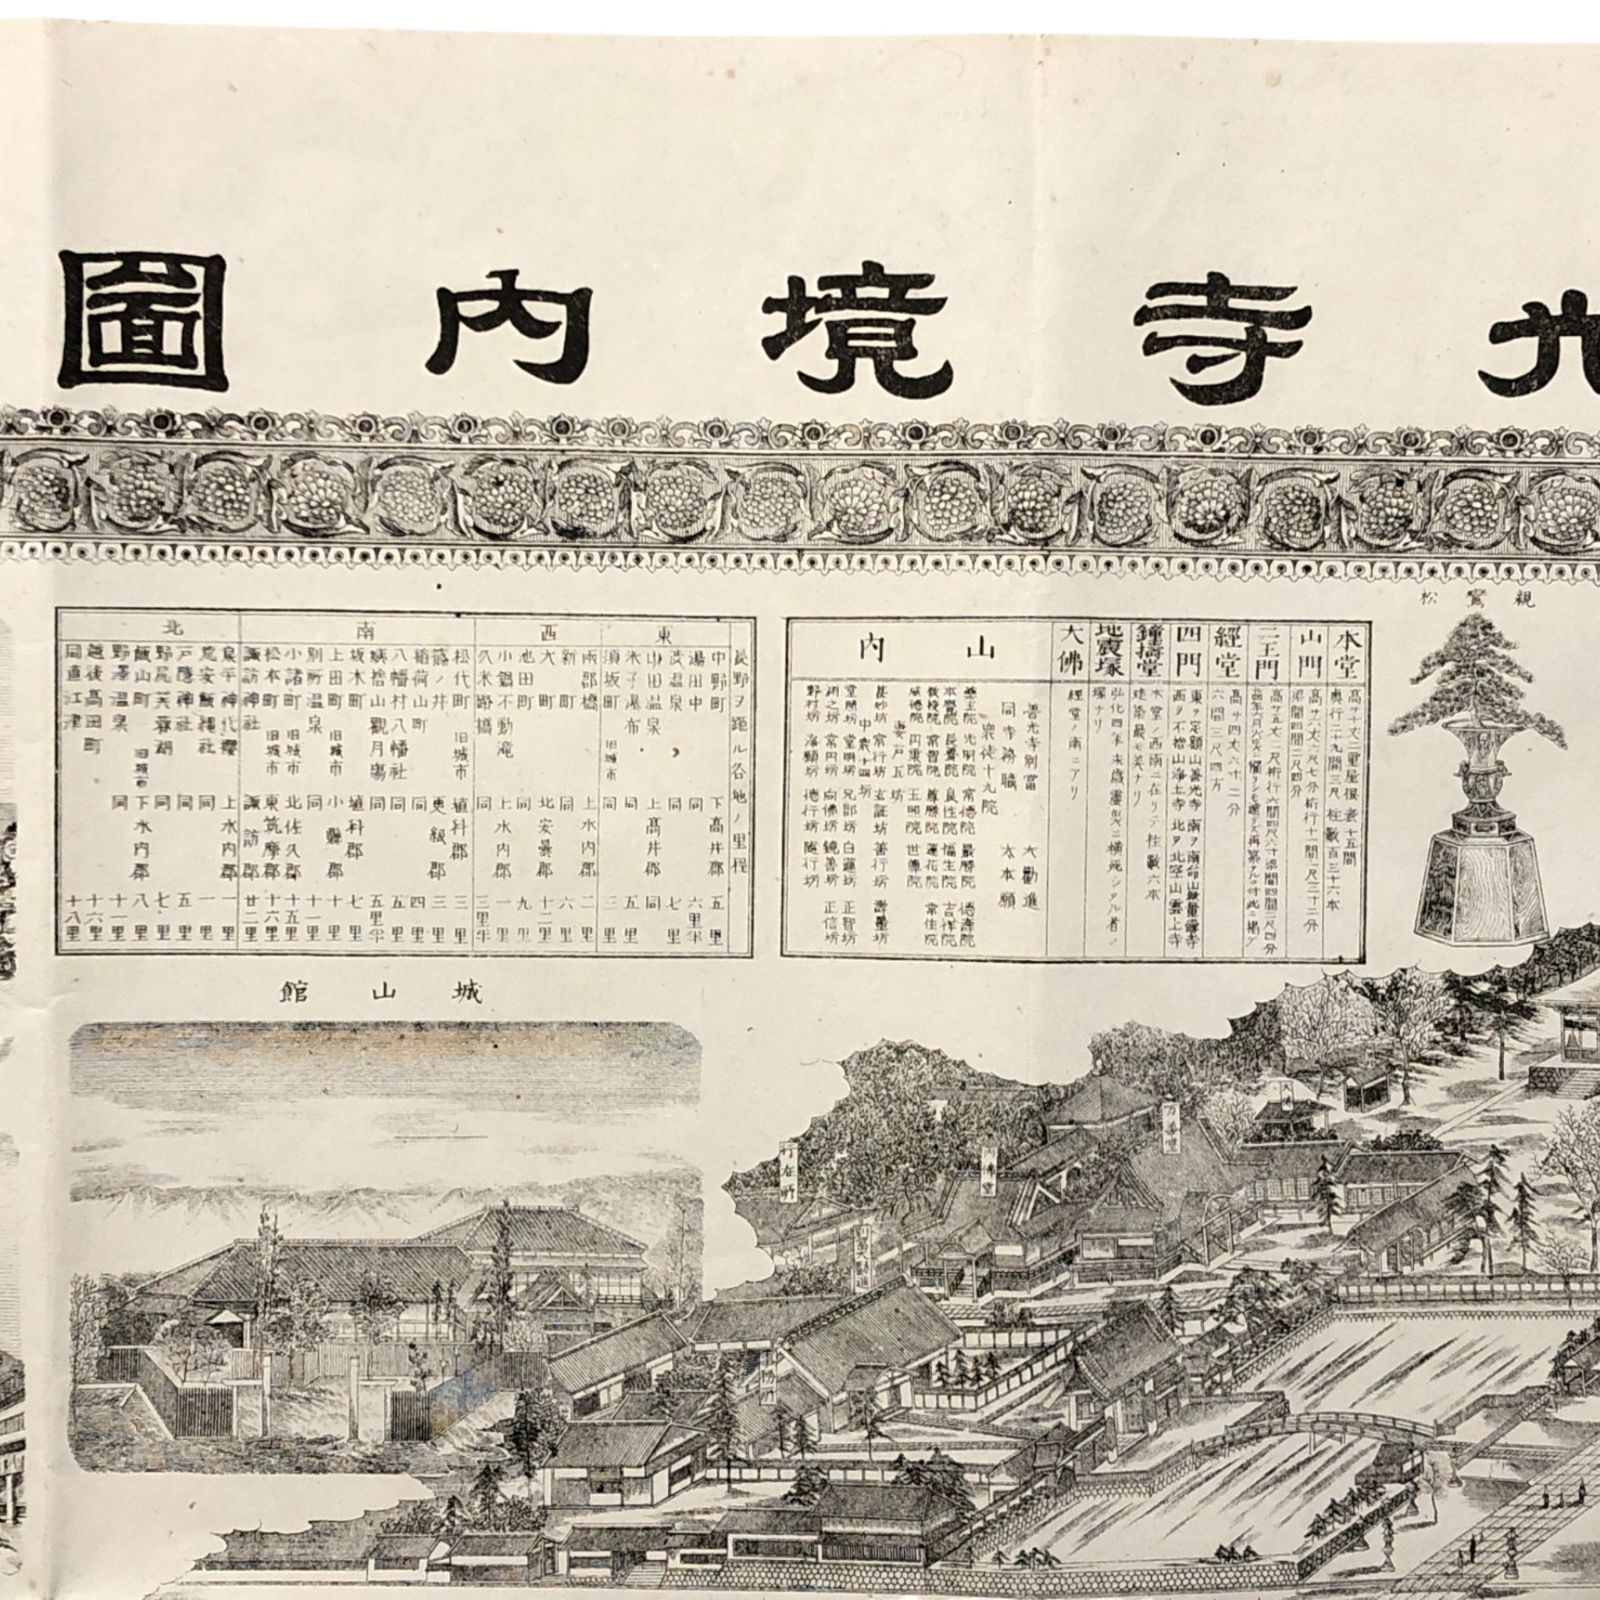 寺境内圖
親鸞松
本堂
高サ十丈二重屋根 表十五間
奥行二十九間三尺 柱數百三十六本
山門
二王門
經堂
高サ四丈六寸二分
六間三尺四方
四門
東ヲ定額山善光寺 南ヲ南命山無量壽寺
西ヲ不捨山淨土寺 北ヲ北空山雲上寺
鐘撞堂
本堂ノ西南ニ在リテ柱數六本
建築最モ美ナリ
地震塚
弘化四年未歳震災ニ横死シタル者ノ
塚ナリ
大佛
經堂ノ南ニアリ
山内
善光寺別當 大勸進
同寺務職 大本願
衆徒十九院
藥王院 光明院 常德院 最勝院 德壽院
本覺院 長養院 良性院 福生院 吉祥院
威德院 円乗院 玉照院 世尊院
妻戸五坊
甚妙坊 常行坊 玄証坊 善行坊 壽量坊
中衆十四坊
堂照坊 堂明坊 兄部坊 白蓮坊 正智坊
淵之坊 常円坊 向佛坊 鏡善坊 正信坊
野村坊 淨願坊 德行坊 隨行坊
長野ヲ距ル各地ノ里程
東
中野町 下高井郡 五里
湯田中 同 六里半
澁温泉 同 七里
山田温泉 上高井郡 同
米子瀑布 同 五里
須坂町 旧城市 同 三里
西
兩郡橋 上水内郡 二里
新町 同 六里
大町 北安曇郡 十二里
池田町 同 九里
小鍋不動滝 上水内郡 一里
久米路橋 同 三里半
南
松代町 旧城市 埴科郡 三里
篠ノ井 更級郡 三里
稲荷山町 同 四里
八幡村八幡社 同 五里
姨捨山觀月塲 同 五里半
坂木町 埴科郡 七里
上田町 旧城市 小縣郡 十里
別所温泉 同 十一里
小諸町 旧城市 北佐久郡 十五里
松本町 旧城市 東筑摩郡 十六里
諏訪神社 諏訪郡 廿二里
北
泉平神代櫻 上水内郡 一里
戸隱神社 同 五里
野尻芙蓉湖 同 七里
飯山町 旧城市 下水内郡 八里
野澤温泉 同 十一里
越後高田町 十六里
同直江津 十八里
城山館
行在所
万善堂